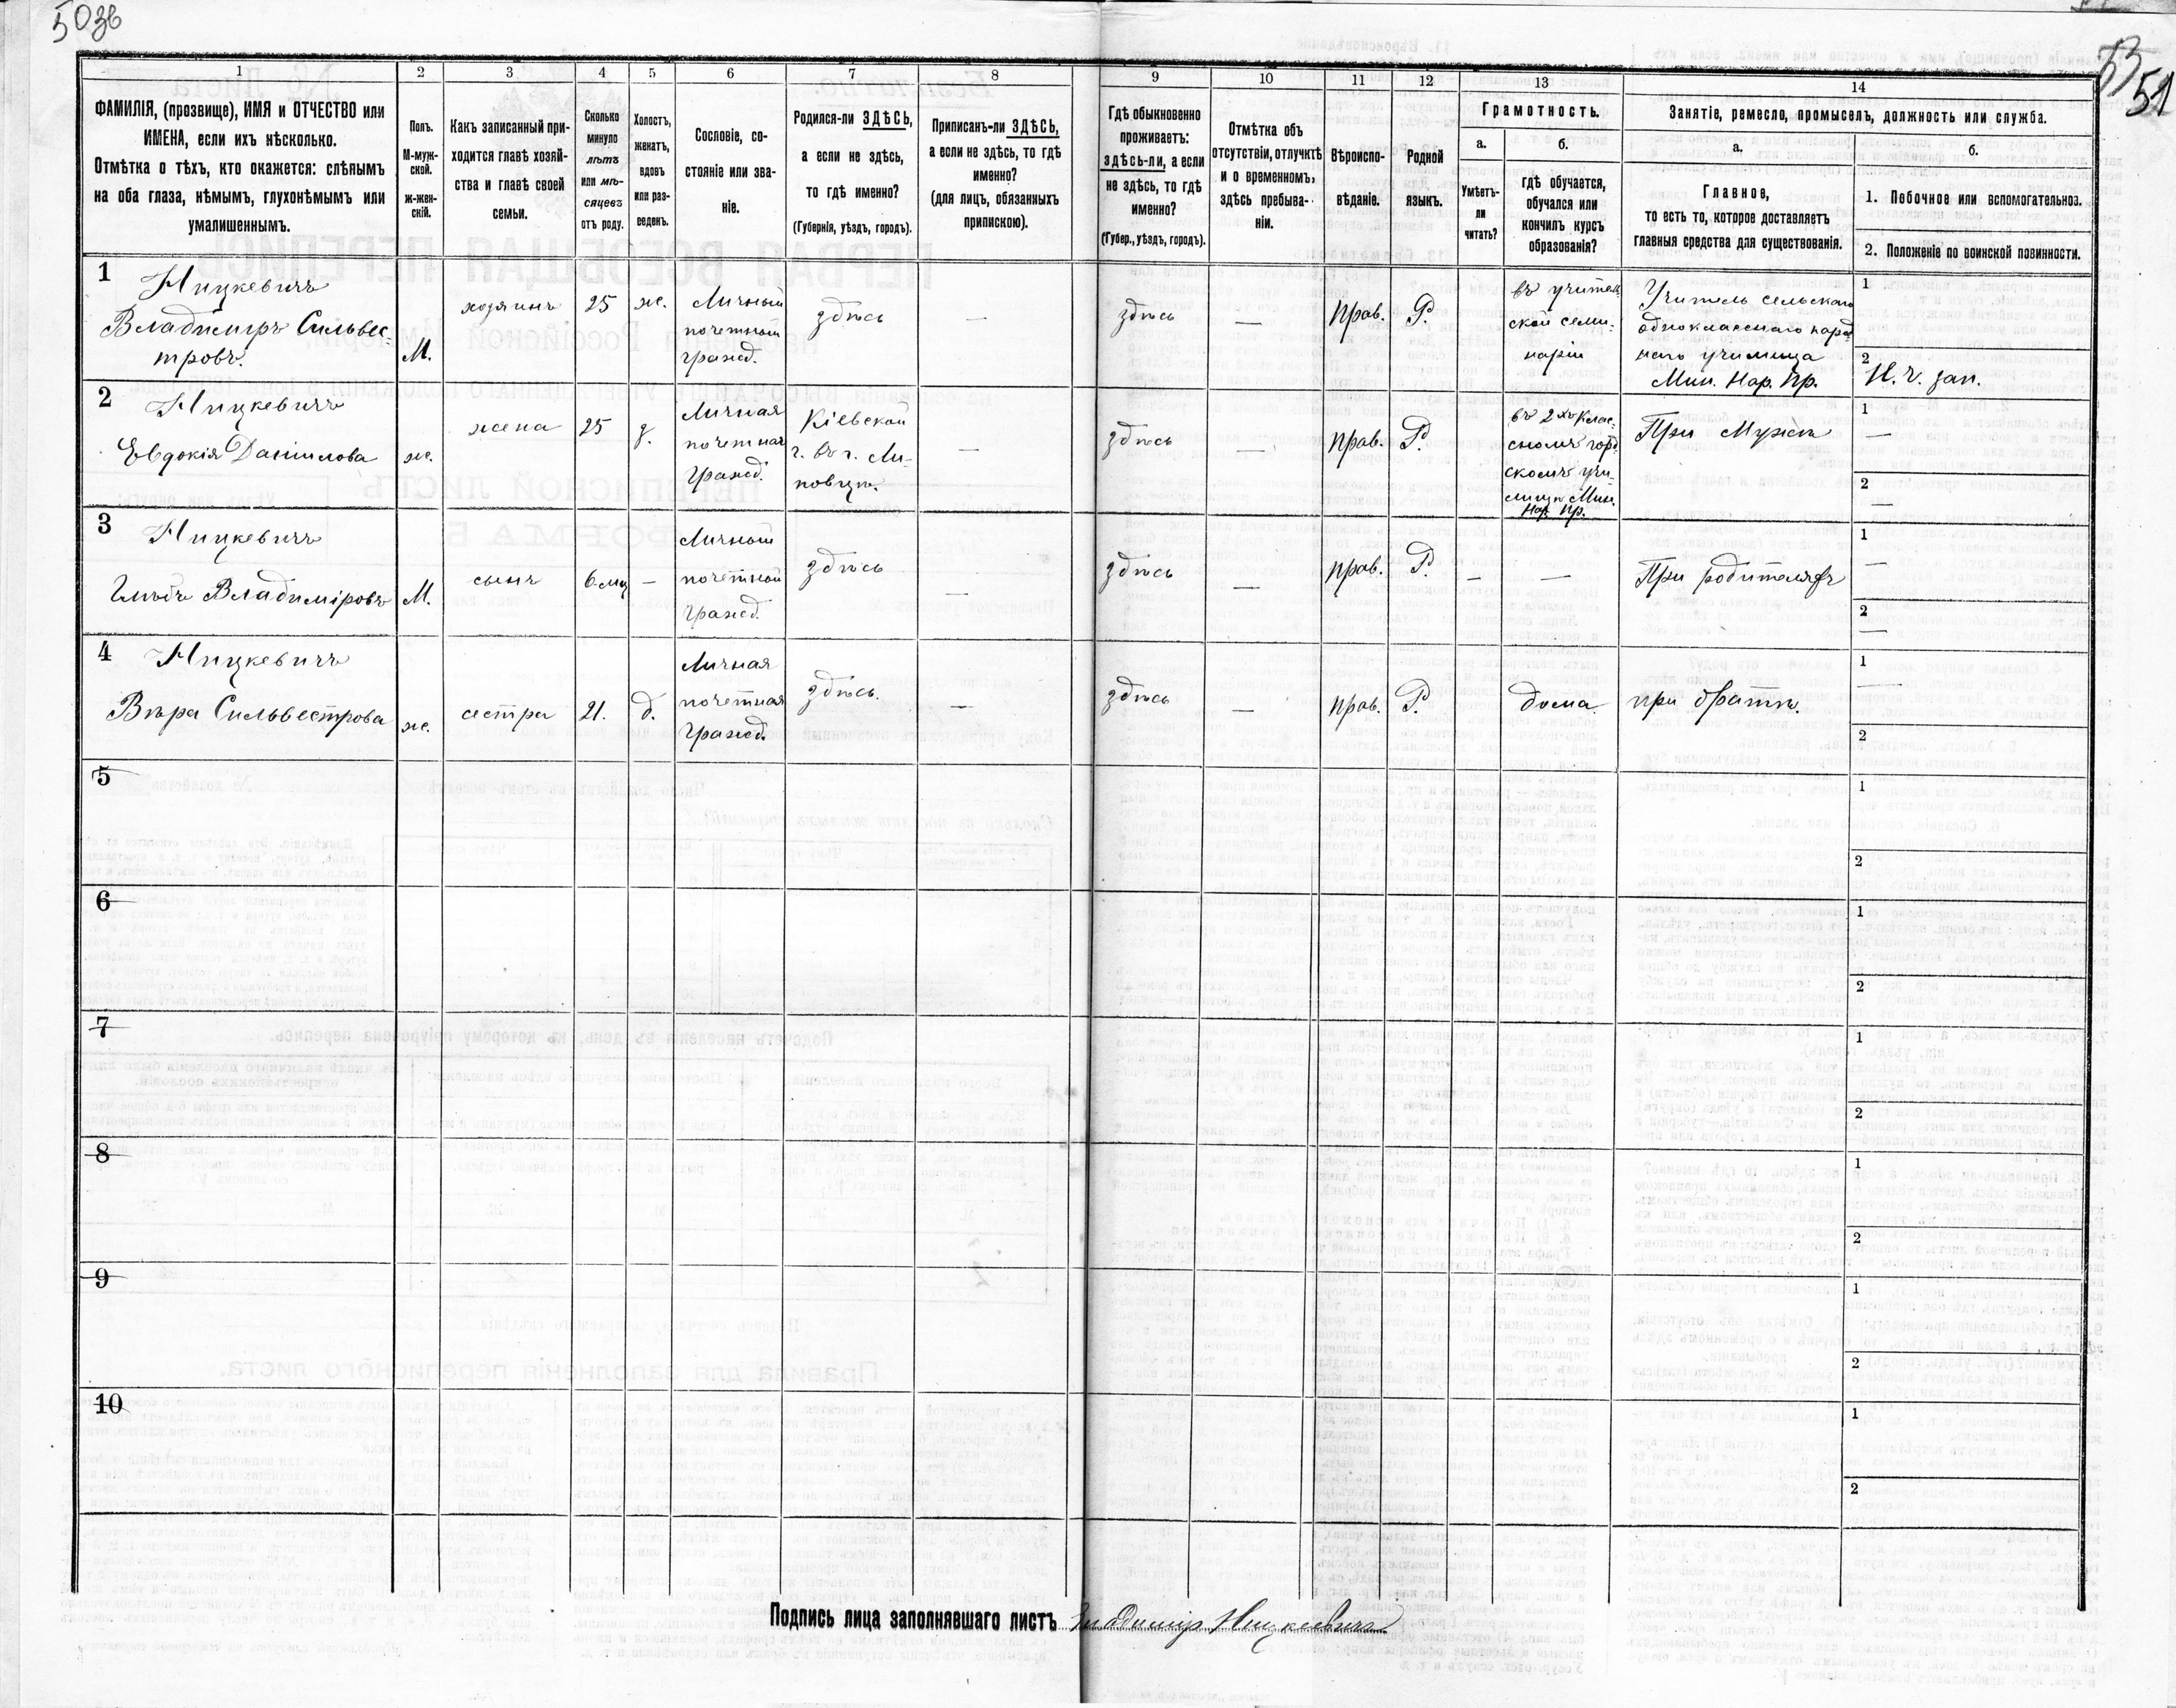 503б
53
51
1
2
3
4
5
6
7
8
9
10
11
12
13
14
ФАМИЛІЯ, (прозвище), ИМЯ и ОТЧЕСТВО или
ИМЕНА, если ихъ нѣсколько.
Отмѣтка о тѣхъ, кто окажется: слѣпымъ
на оба глаза, нѣмымъ, глухонѣмымъ или
умалишеннымъ.
Полъ.
М-муж-
ской.
ж-жен-
скій.
Какъ записанный при-
ходится главѣ хозяй-
ства и главѣ своей
семьи.
Сколько
минуло
лѣтъ
или мѣ-
сяцевъ
отъ роду.
Холостъ,
женатъ,
вдовъ
или раз-
веденъ.
Сословіе, со-
стояніе или зва-
ніе.
Родился-ли ЗДѢСЬ,
а если не здѣсь,
то гдѣ именно?
(Губернія, уѣздъ, городъ).
Приписанъ-ли ЗДѢСЬ,
а если не здѣсь, то гдѣ
именно?
(для лицъ, обязанныхъ
припискою).
Гдѣ обыкновенно
проживаетъ:
здѣсь-ли, а если
не здѣсь, то гдѣ
именно?
(Губер., уѣздъ, городъ).
Отмѣтка объ
отсутствіи, отлучкѣ
и о временномъ,
здѣсь пребыва-
ніи.
Вѣроиспо-
вѣданіе.
Родной
языкъ.
Грамотность.
а.
Умѣетъ-
ли
читать?
б.
гдѣ обучается,
обучался или
кончилъ курсъ
образованія?
Занятіе, ремесло, промыселъ, должность или служба.
а.
Главное,
то есть то, которое доставляетъ
главныя средства для существованія.
б.
1. Побочное или вспомогательноэ.
2. Положеніе по воинской повинности.
1
Ницкевичъ
Владиміръ Сильвес-
тровъ.
М.
хозяинъ
25
ж.
Личный
почетный
гражд.
здѣсь
—
здѣсь
—
прав.
Р.
въ учитель-
ской семи-
наріи
Учитель сельскаго
однокласснаго народ
наго училища
Мин. Нар. Пр.
1
2
Н. ч. зап.
2
Ницкевичъ
Евдокія Данилова
ж.
жена
25
з.
Личная
почетная
гражд.
Кіевской
г. въ г. Ли-
повцѣ.
—
здѣсь
—
прав.
Р.
въ 2хъ клас-
сномъ город
скомъ учи-
лищѣ Мин.
Нар. Пр.
При мужѣ
1
—
2
—
3
Ницкевичъ
Глѣбъ Владиміровъ
М.
сынъ
6 мц
—
Личный
почетный
гражд.
здѣсь
—
здѣсь
—
прав.
Р.
—
—
При родителяхъ
1
—
2
—
4
Ницкевичъ
Вѣра Сильвестрова
ж.
сестра
21.
д.
Личная
почетная
гражд.
здѣсь.
—
здѣсь
—
прав.
Р.
дома.
при братѣ.
1
—
2
5
1
2
6
1
2
7
1
2
8
1
2
9
1
2
10
1
2
Подпись лица заполнявшаго листъ Владиміръ Ницкевичъ